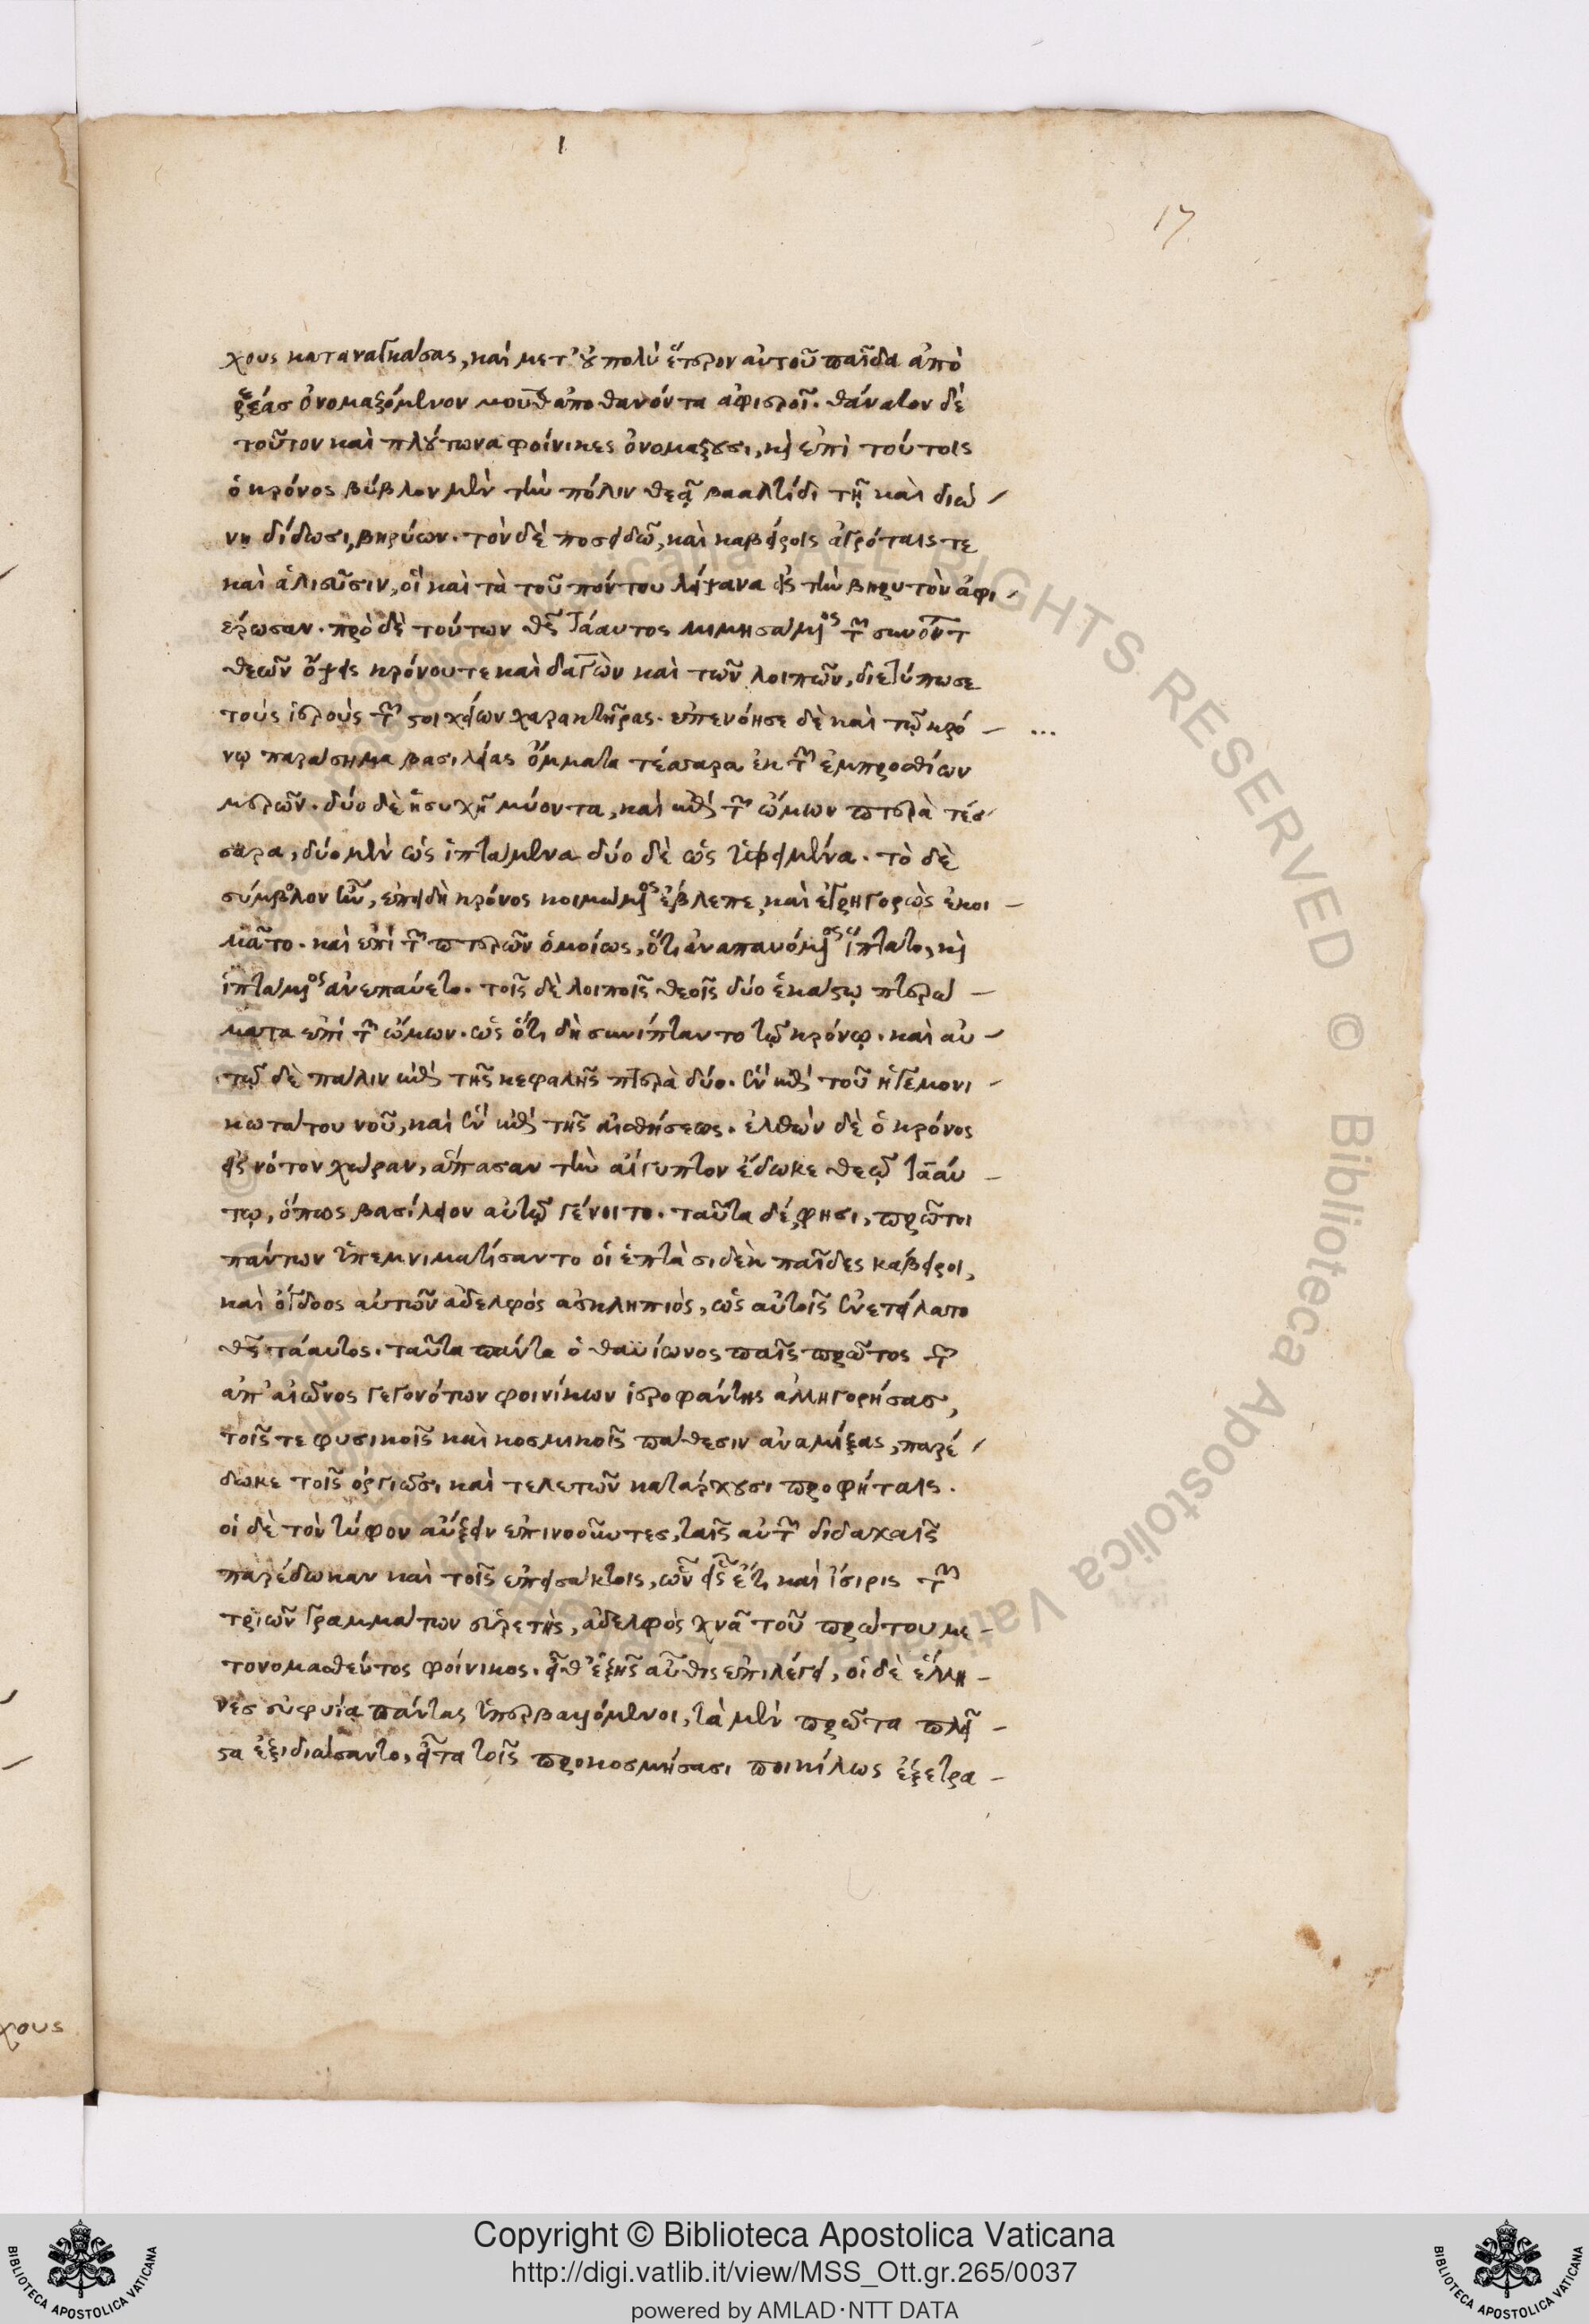 17
χους καταναγκάσας, καὶ μετ' οὐ πολὺ ἕτερον αὐτοῦ παῖδα ἀπὸ
ῥέας ὀνομαζόμενον μοὺθ ἀποθανόντα ἀφιεροῖ. θάνατον δὲ
τοῦτον καὶ πλούτωνα φοίνικες ὀνομάζουσι, καὶ ἐπὶ τούτοις
ὁ κρόνος βύβλον μὲν τὴν πόλιν θεᾷ βααλτίδι τῇ καὶ διώ-
νῃ δίδωσι, βηρύων. τὸν δὲ ποσειδῶ, καὶ καβείροις ἀγρόταις τε
καὶ ἁλιεῦσιν, οἳ καὶ τὰ τοῦ πόντου λείψανα εἰς τὴν βηρυτὸν ἀφι-
έρωσαν. πρὸ δὲ τούτων θεὸς τάαυτος μιμησάμενος τῶν συνόντ
θεῶν ὄψεις κρόνου τε καὶ δαγὼν καὶ τῶν λοιπῶν, διετύπωσε
τοὺς ἱεροὺς τῶν στοιχείων χαρακτῆρας. ἐπενόησε δὲ καὶ τῷ κρό-
νῳ παράσημα βασιλείας ὄμματα τέσσαρα ἐκ τῶν ἐμπροσθίων
μερῶν. δύο δὲ ἡσυχῆ μύοντα, καὶ ἐπὶ τῶν ὤμων πτερὰ τέσ-
σαρα, δύο μὲν ὡς ἱπτάμενα δύο δὲ ὡς ὑφειμένα. τὸ δὲ
σύμβολον ἦν, ἐπειδὴ κρόνος κοιμώμενος ἔβλεπε, καὶ ἐγρηγορὼς ἐκοι-
μᾶτο. καὶ ἐπὶ τῶν πτερῶν ὁμοίως, ὅτι ἀναπαυόμενος ἵπτατο, καὶ
ἱπτάμενος ἀνεπαύετο. τοῖς δὲ λοιποῖς θεοῖς δύο ἑκάστῳ πτερώ-
ματα ἐπὶ τῶν ὤμων. ὡς ὅτι δὴ συνίπταντο τῷ κρόνῳ. καὶ αὐ-
τῷ δὲ πάλιν ἐπὶ τῆς κεφαλῆς πτερὰ δύο. ἓν ἐπὶ τοῦ ἡγεμονι-
κωτάτου νοῦ, καὶ ἓν ἐπὶ τῆς αἰσθήσεως. ἐλθὼν δὲ ὁ κρόνος
εἰς νότον χώραν, ἅπασαν τὴν αἴγυπτον ἔδωκε θεῷ τααύ-
τῳ, ὅπως βασίλειον αὐτῷ γένοιτο. ταῦτα δέ, φησι, πρῶτοι
πάντων ὑπεμνιματίσαντο οἱ ἑπτὰ σιδὲκ παῖδες κάβειροι,
καὶ ὄγδοος αὐτῶν ἀδελφὸς ἀσκληπιὸς, ὡς αὐτοῖς ἐνετείλατο
θεὸς τάαυτος. ταῦτα πάντα ὁ θαϋίωνος παῖς πρῶτος τῶν
ἀπ' αἰῶνος γεγονότων φοινίκων ἱεροφάντης ἀλληγορήσας,
τοῖς τε φυσικοῖς καὶ κοσμικοῖς πάθεσιν ἀναμίξας, παρέ-
δωκε τοῖς ὀργιῶσι, καὶ τελετῶν κατάρχουσι προφήταις.
οἱ δὲ τὸν τύφον αὔξειν ἐπινοοῦντες, ταῖς αὐτῶν διδαχαῖς
παρέδωκαν καὶ τοῖς ἐπεισάκτοις, ὧν εἷς ἔτι καὶ ἴσιρις τῶν
τριῶν γραμμάτων εὑρετὴς, ἀδελφὸς χνᾶ τοῦ πρώτου με-
τονομασθέντος φοίνικος. εἶθ' ἑξῆς αὖθις ἐπιλέγει, οἱ δὲ ἕλλη-
νες εὐφυΐᾳ πάντας ὑπερβαλλόμενοι, τὰ μὲν πρῶτα πλεῖ-
στα ἐξιδιάσαντο, εἶτα τοῖς προκοσμήσασι ποικίλως ἐξετρα-
χους
Copyright © Biblioteca Apostolica Vaticana
http://digi.vatlib.it/view/MSS_Ott.gr.265/0037
powered by AMLAD·NTT DATA